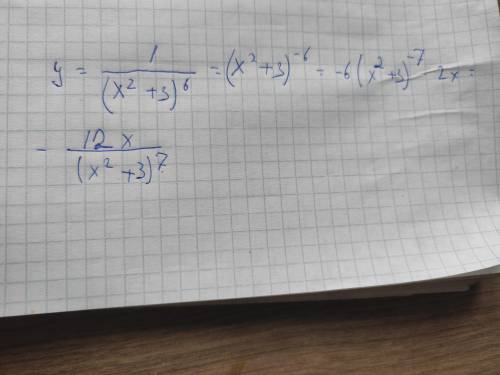 y = 1/(x² + 3)⁶ = (x² + 3)⁻⁶ = -6(x² + 3)⁻⁷ · 2x =
- 12x/(x² + 3)⁷